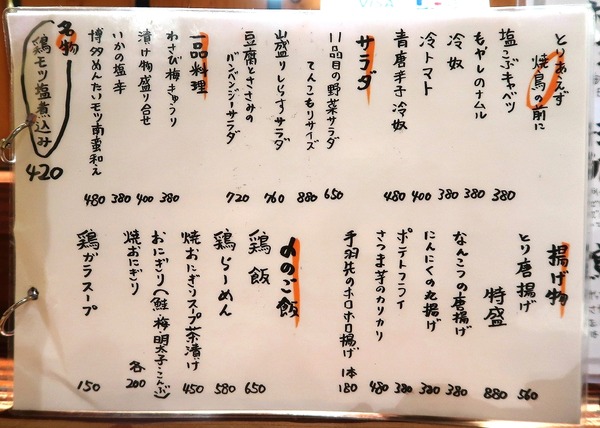 とりあえず
焼鳥の前に
塩っぷキャベツ 380
もやしのナムル 380
冷奴 380
冷トマト 400
青唐辛子冷奴 480
サラダ
11品目の野菜サラダ 650
てんこもりサイズ 880
山盛りしらすサラダ 760
豆腐とささみの
バンバンジーサラダ 720
一品料理
わさび梅きゅうり 380
漬け物盛り合せ 400
いかの塩辛 380
博多めんたいモツ南蛮和え 480
名物
鶏モツ塩煮込み
420
揚げ物
とり唐揚げ 560
特盛 880
なんこつの唐揚げ 380
にんにくの丸揚げ 380
ポテトフライ 380
さつま芋のカリカリ 480
手羽先のホロホロ揚げ 1本 180
〆のご飯
鶏飯 650
鶏らーめん 580
焼おにぎりスープ茶漬け 450
おにぎり(鮭・梅・明太子・こんぶ)
焼おにぎり 各200
鶏ガラスープ 150